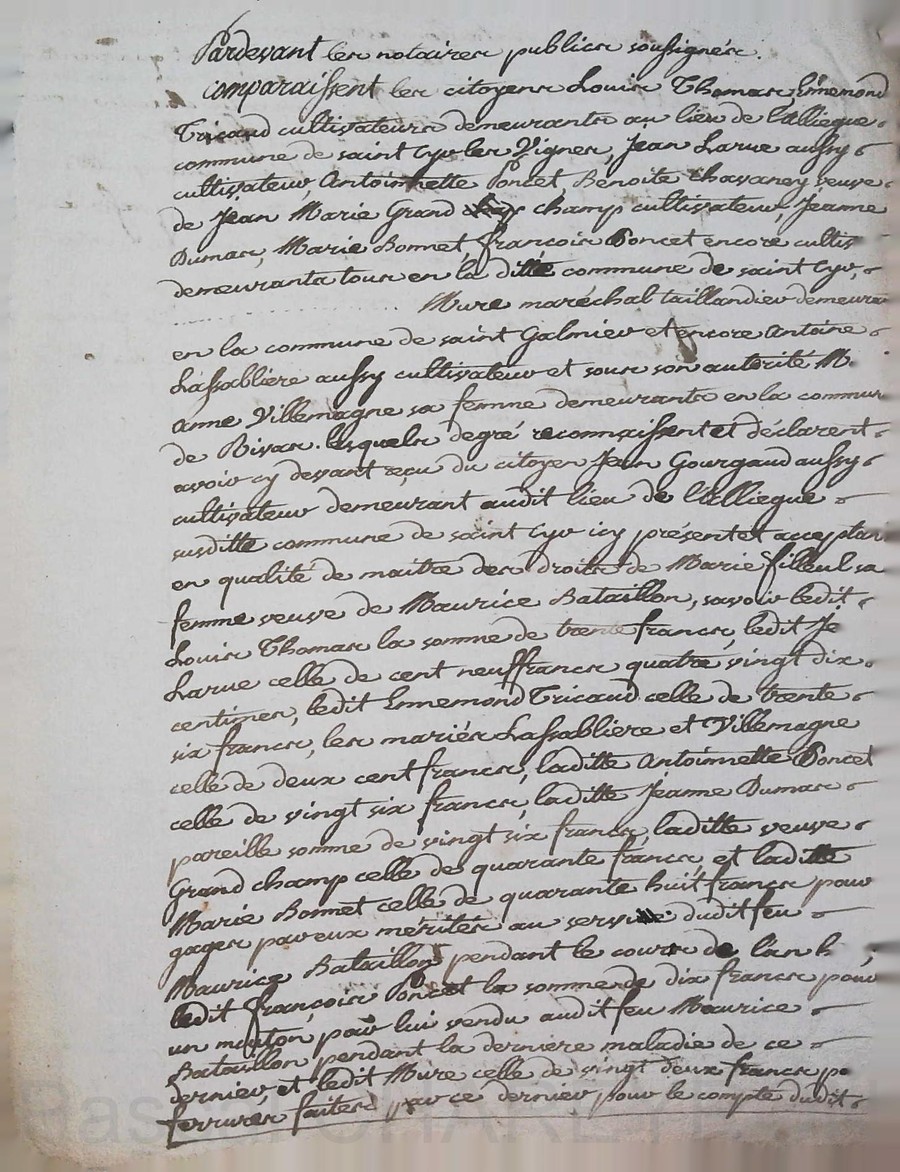 Pardevant les notaires publics soussignés.
comparaissent les citoyens Louis Thomas, Ennemond
Tricaud cultivateurs demeurants au lieu de l'alliegue
commune de saint Cyr les Vignes, Jean Larue aussy
cultivateur, Antoinnette Poncet, Benoite Chavaney veuve
de Jean Marie Grand champ cultivateur, Jeanne
Dumas, Marie Bonnet, françois Poncet encore cultiv
demeurants tous en la ditte commune de saint Cyr,
Mure maréchal taillandier demeura
en la commune de saint Galmier et encore Antoine
Lassabliere aussy cultivateur et sous son autorité M.
anne Villemagne sa femme demeurants en la commun
de Rivas. lesquels de gré reconnaissent et déclarent
avoir cy devant reçu du citoyen Jean Gourgaud aussy
cultivateur demeurant audit lieu de l'alliegue
susditte commune de saint Cyr icy présent et acceptan
en qualité de maitre des droits de Marie filleul sa
femme veuve de Maurice Bataillon, savoir ledit
Louis Thomas la somme de trente francs, ledit Je
Larue celle de cent neuf francs quatre vingt dix
centimes, ledit Ennemond Tricaud celle de trente
six francs, les mariés Lassabliere et Villemagne
celle de deux cent francs, laditte Antoinnette Poncet
celle de vingt six francs, laditte Jeanne Dumas
pareille somme de vingt six francs, laditte veuve
Grand champ celle de quarante francs, et laditte
Marie Bonnet celle de quarante huit francs pour
gages par eux mérités au service dudit feu
Maurice Bataillon pendant le cours de l'an h
ledit françois Poncet la somme de dix francs pour
un mouton pour lui vendu audit feu Maurice
Bataillon pendant la derniere maladie de ce
dernier, et ledit Mure celle de vingt deux francs po
ferrures faites par ce dernier pour le compte dudit